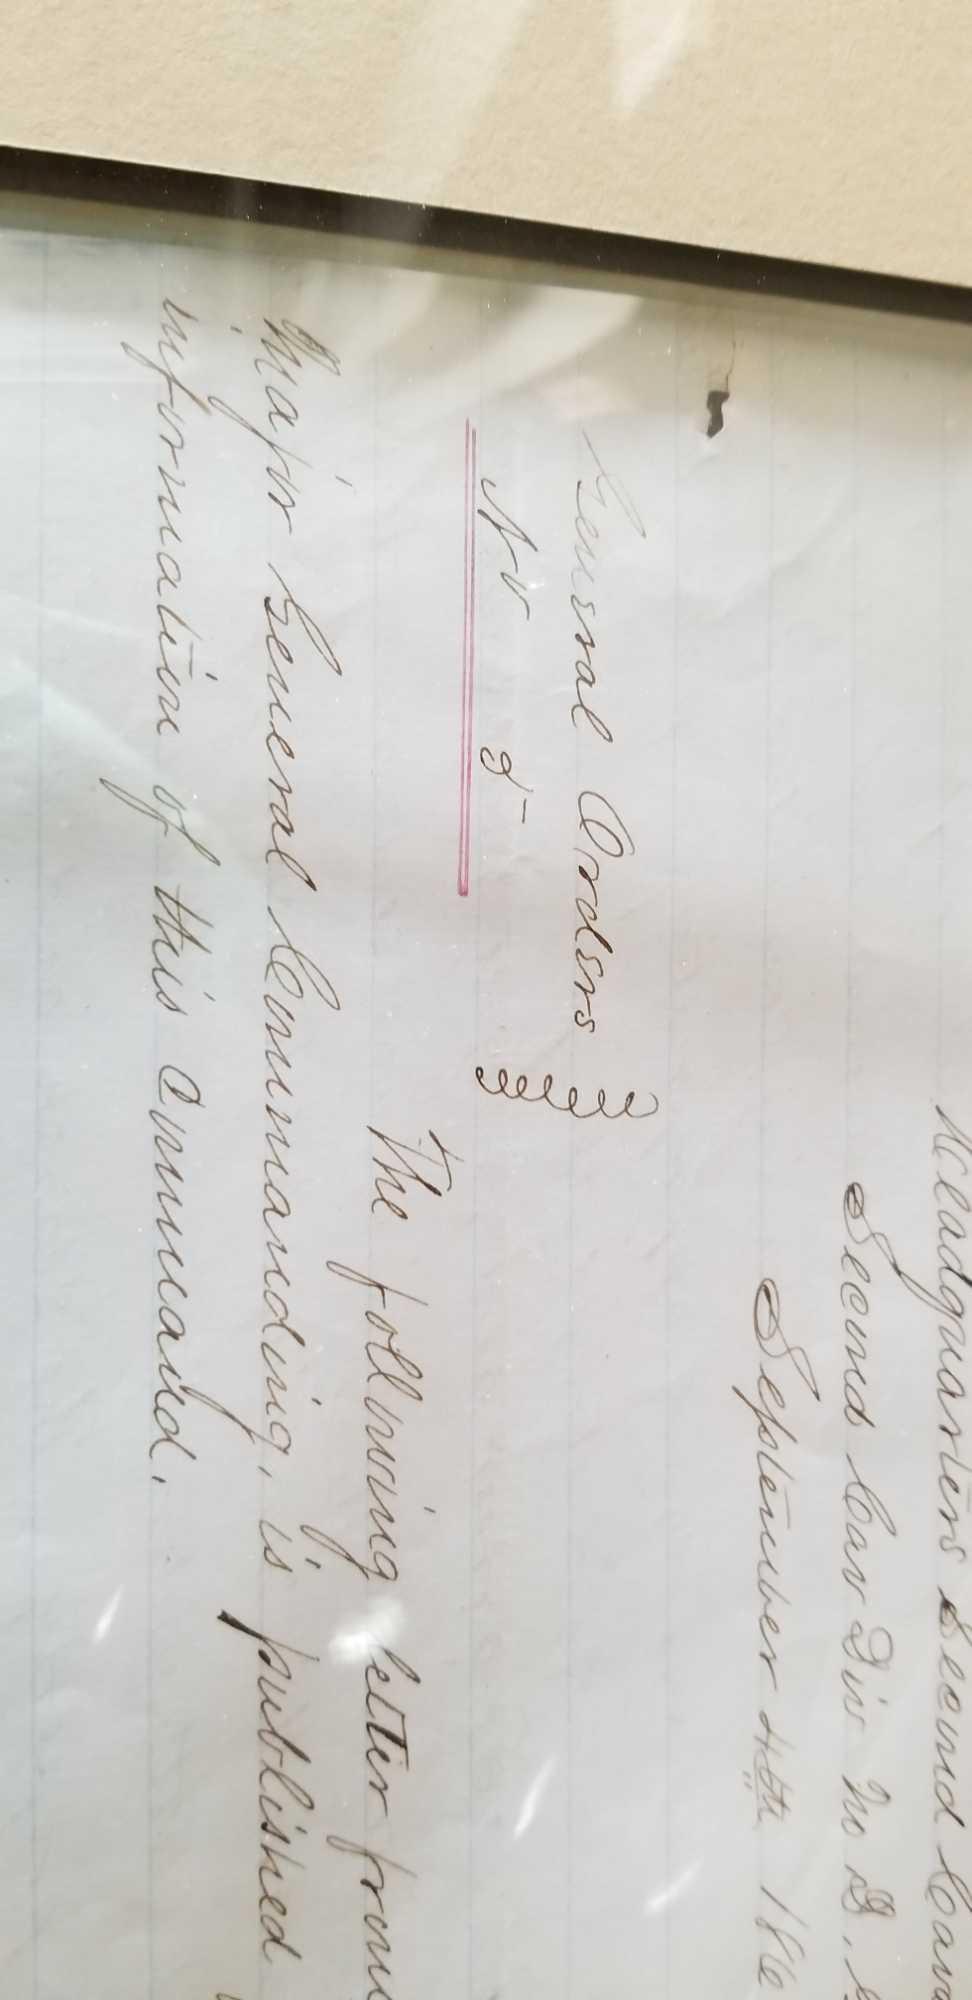 Headquarters Second Cav
Second Cav Div M. D.
September 4th 186
General Orders
No 5
The following letter from
Major General Commanding, is published
information of this Command.